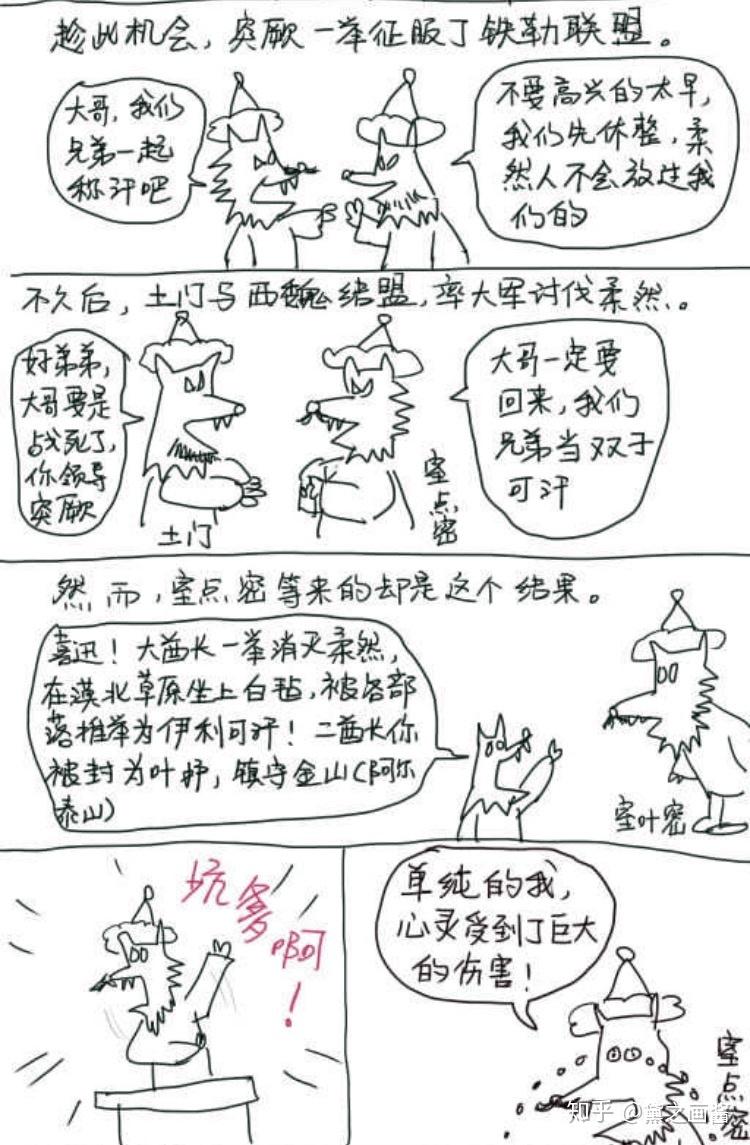 趁此机会，突厥一举征服了铁勒联盟。
大哥，我们
兄弟一起
称汗吧
不要高兴的太早，
我们先休整，柔
然人不会放过我
们的
不久后，土门与西魏结盟，率大军讨伐柔然。
好弟弟，
大哥要是
战死了，
你领导
突厥
土门
大哥一定要
回来，我们
兄弟当双子
可汗
室点密
然而，室点密等来的却是这个结果。
喜迅！大酋长一举消灭柔然，
在漠北草原坐上白毡，被各部
落推举为伊利可汗！二酋长你
被封为叶护，镇守金山（阿尔
泰山）
室叶密
坑爹啊！
单纯的我，
心灵受到了巨大
的伤害！
室点密
知乎 @黛之画酱